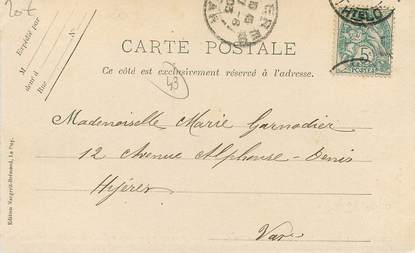 20 €
Expédié par
M.
demt à
Rue
CARTE POSTALE
Ce côté est exclusivement réservé à l'adresse.
43
Mademoiselle Marie Garnodier
12 Avenue Alphonse-Denis
Hyères
Var
5
POSTES
Edition Margerit-Brémond, Le Puy.